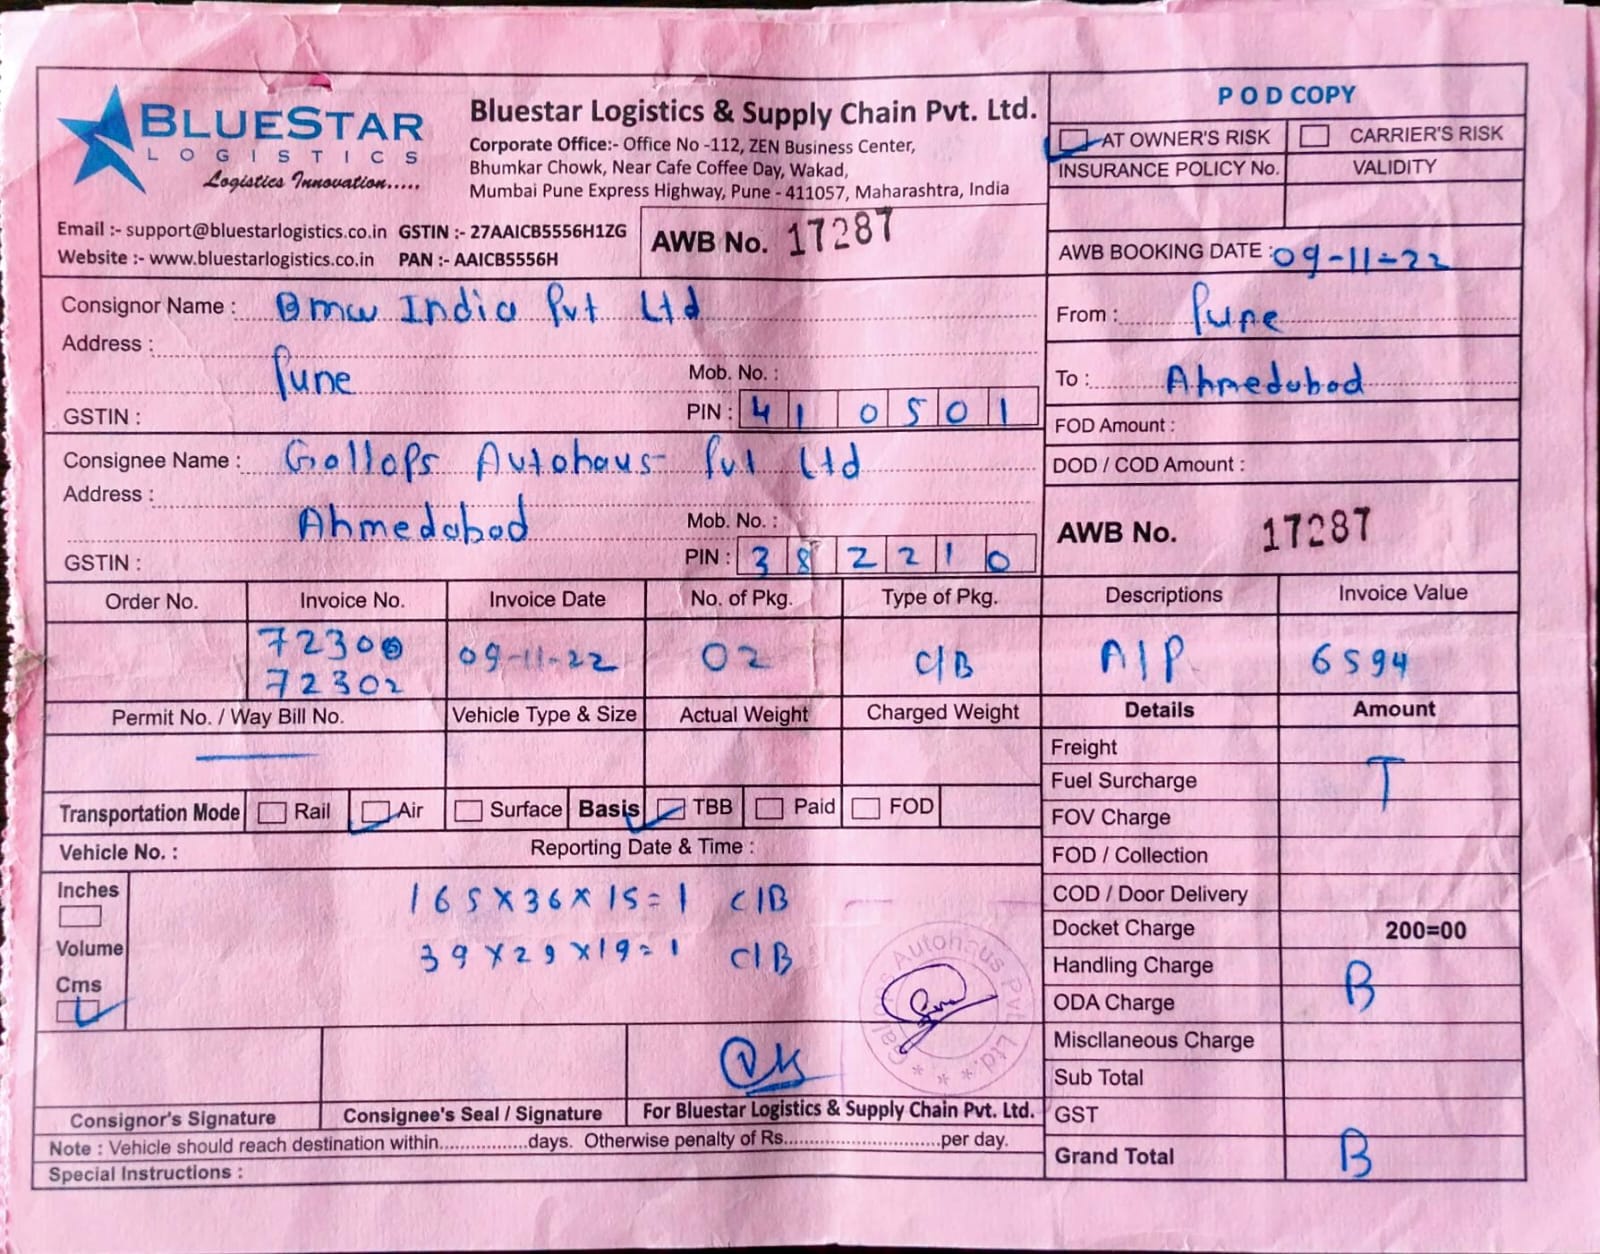 BLUESTAR
LOGISTICS
Logistics Innovation.....
Bluestar Logistics & Supply Chain Pvt. Ltd.
Corporate Office:- Office No -112, ZEN Business Center,
Bhumkar Chowk, Near Cafe Coffee Day, Wakad,
Mumbai Pune Express Highway, Pune - 411057, Maharashtra, India
Email :- support@bluestarlogistics.co.in GSTIN :- 27AAICB5556H1ZG
Website :- www.bluestarlogistics.co.in PAN :- AAICB5556H
AWB No. 17287
POD COPY
AT OWNER'S RISK CARRIER'S RISK
INSURANCE POLICY No. VALIDITY
AWB BOOKING DATE : 09-11-22
From : Pune
To : Ahmedabad
FOD Amount :
DOD / COD Amount :
AWB No. 17287
Consignor Name : Bmw India Pvt Ltd
Address :
Pune
Mob. No. :
GSTIN : PIN : 410501
Consignee Name : Gallops Autohaus Pvt Ltd
Address :
Ahmedabad
Mob. No. :
GSTIN : PIN : 382210
Order No. Invoice No. Invoice Date No. of Pkg. Type of Pkg. Descriptions Invoice Value
72300 09-11-22 02 C/B A/P 6594
72302
Permit No. / Way Bill No. Vehicle Type & Size Actual Weight Charged Weight Details Amount
Transportation Mode Rail Air Surface Basis TBB Paid FOD
Vehicle No. : Reporting Date & Time :
Inches
Volume
Cms
165x36x15=1 C/B
39x29x19=1 C/B
Freight
T
Fuel Surcharge
FOV Charge
FOD / Collection
COD / Door Delivery
Docket Charge 200=00
Handling Charge
B
ODA Charge
Miscllaneous Charge
Sub Total
GST
Grand Total B
Gallops Autohaus Pvt. Ltd.
Consignor's Signature Consignee's Seal / Signature For Bluestar Logistics & Supply Chain Pvt. Ltd.
Note : Vehicle should reach destination within................days. Otherwise penalty of Rs............................per day.
Special Instructions :